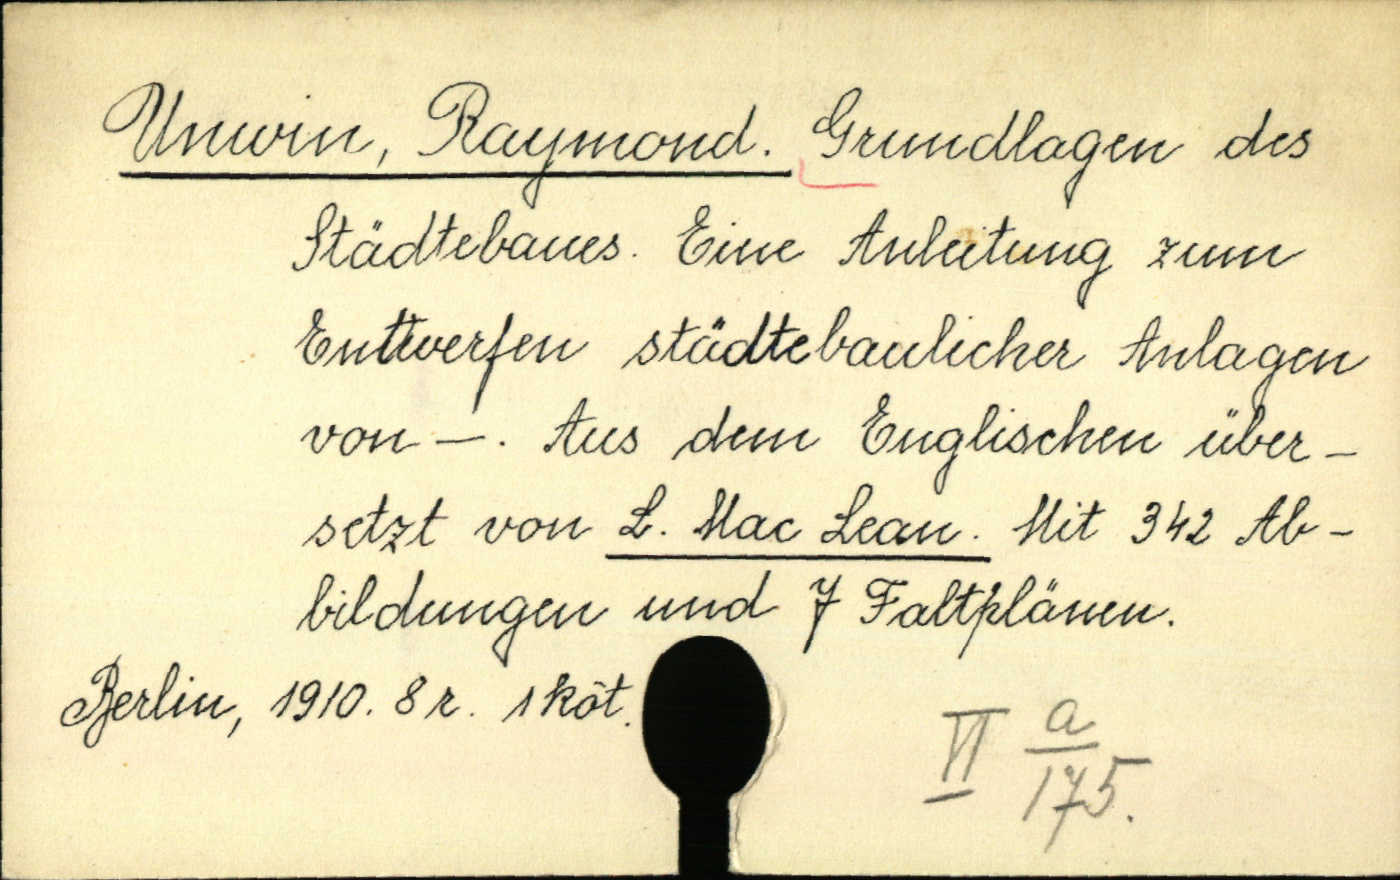 Unwin, Raymond. Grundlagen des
Städtebaues. Eine Anleitung zum
Entwerfen städtebaulicher Anlagen
von —. Aus dem Englischen über-
setzt von L. Mac Lean. Mit 342 Ab-
bildungen und 7 Faltplänen.
Berlin, 1910. 8 r. 1 köt.
VI a/175.